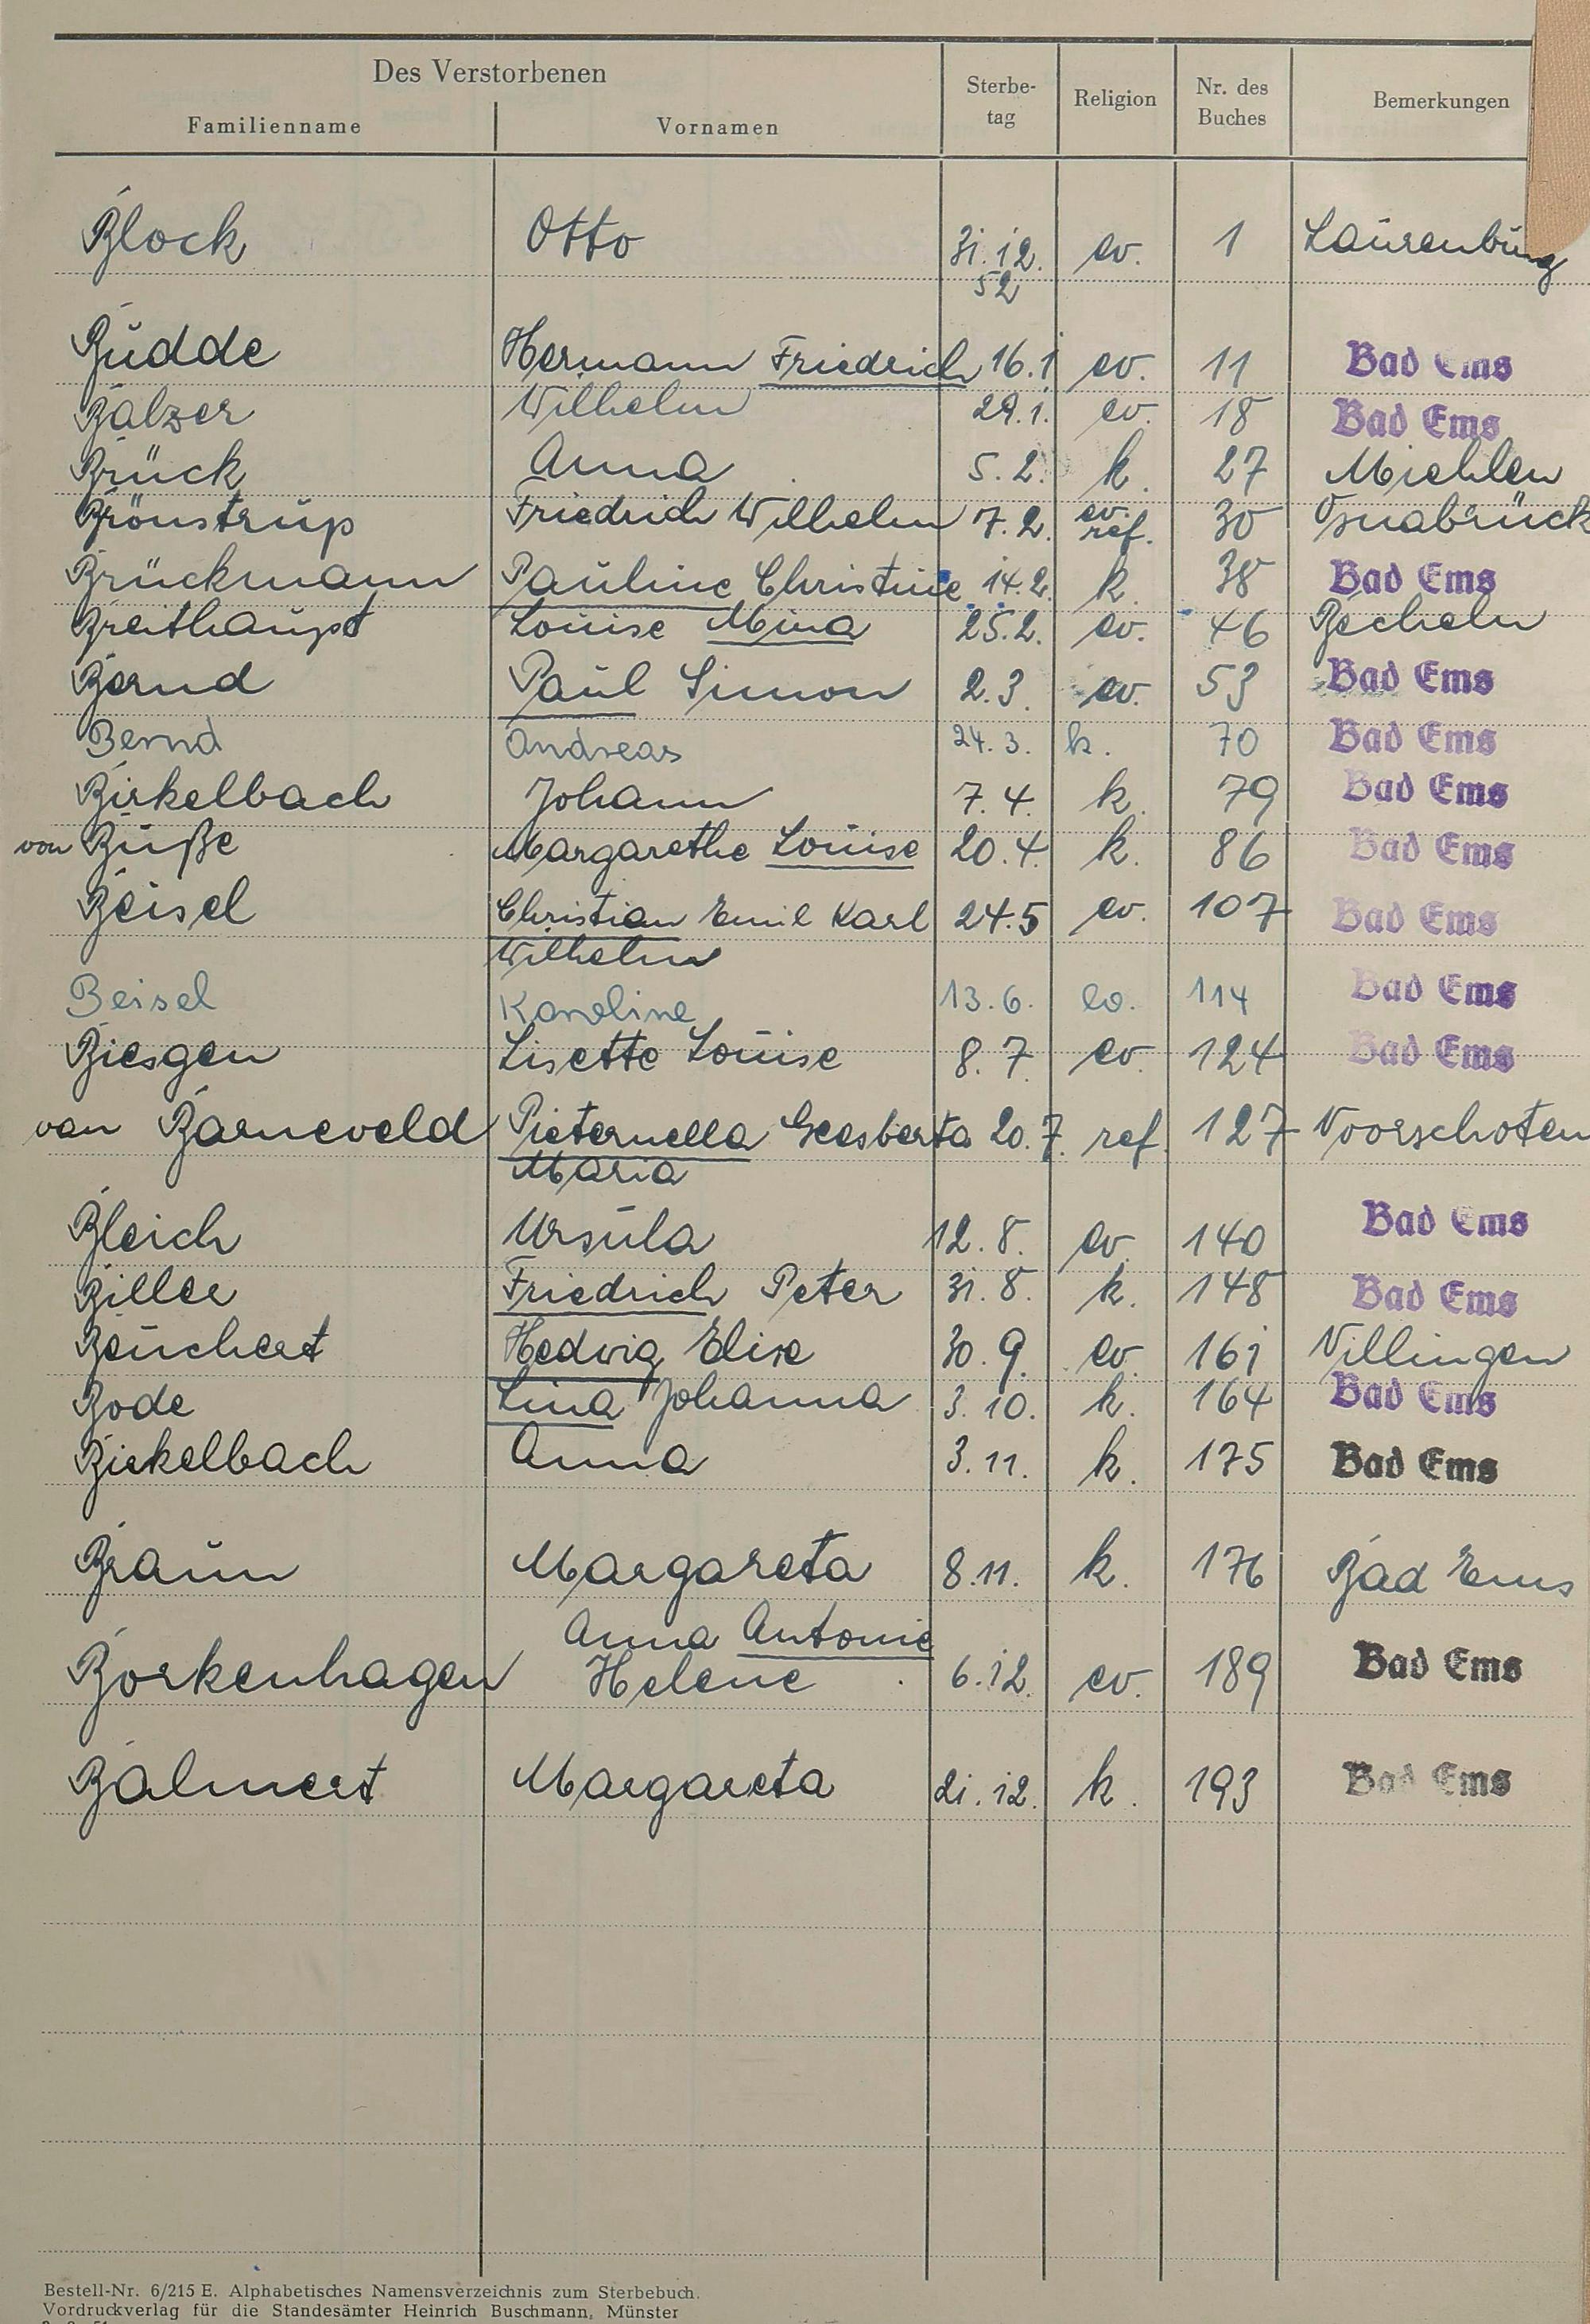 Des Verstorbenen
Familienname Vornamen Sterbe-tag Religion Nr. des Buches Bemerkungen
Block Otto 31.12.52 ev. 1 Laurenburg
Budde Hermann Friedrich 16.1 ev. 11 Bad Ems
Balzer Wilhelm 29.1. ev. 18 Bad Ems
Brück Anna 5.2. k. 27 Miehlen
Brönstrup Friedrich Wilhelm 7.2. ev. ref. 30 Osnabrück
Brückmann Pauline Christine 14.2. k. 38 Bad Ems
Breithaupt Louise Mina 25.2. ev. 46 Becheln
Bernd Paul Simon 2.3. ev. 53 Bad Ems
Bernd Andreas 24.3. k. 70 Bad Ems
Birkelbach Johann 7.4. k. 79 Bad Ems
von Buße Margarethe Louise 20.4. k. 86 Bad Ems
Beisel Christian Emil Karl 24.5 ev. 107 Bad Ems
Wilhelm
Beisel Karoline 13.6. ev. 114 Bad Ems
Biesgen Lisette Louise 8.7. ev. 124 Bad Ems
van Barneveld Pieternella Geesberta 20.7. ref. 127 Voorschoten
Maria
Bleich Ursula 12.8. ev. 140 Bad Ems
Biller Friedrich Peter 31.8. k. 148 Bad Ems
Beuchert Hedwig Elise 30.9. ev. 161 Villingen
Bode Lina Johanna 3.10. k. 164 Bad Ems
Birkelbach Anna 3.11. k. 175 Bad Ems
Braun Margareta 8.11. k. 176 Bad Ems
Anna Antonie
Borkenhagen Helene 6.12. ev. 189 Bad Ems
Balmert Margareta 21.12. k. 193 Bad Ems
Bestell-Nr. 6/215 E. Alphabetisches Namensverzeichnis zum Sterbebuch.
Vordruckverlag für die Standesämter Heinrich Buschmann, Münster